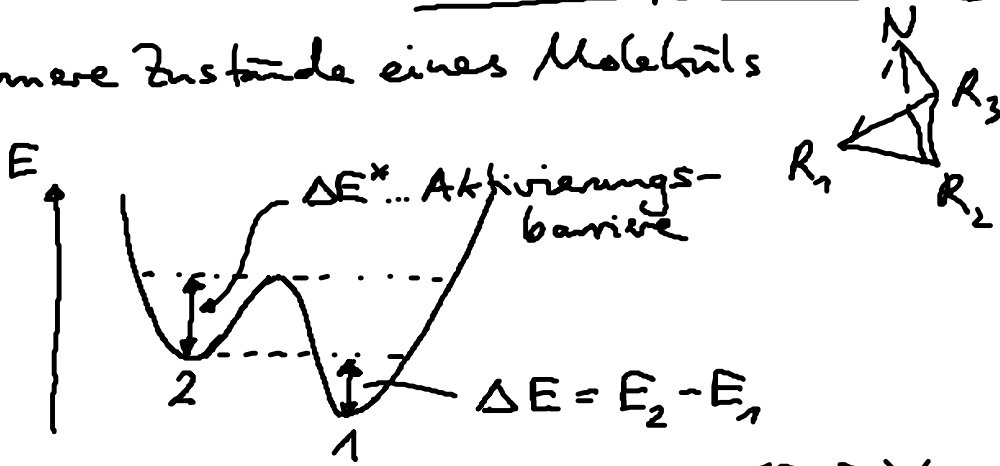 Zustände eines Moleküls
N
R₃
R₁
R₂
E
ΔE* ... Aktivierungs-
barriere
2
1
ΔE = E₂ - E₁